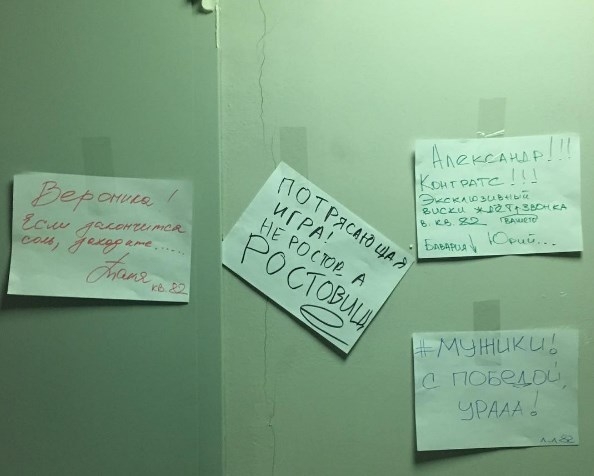 Вероника!
Если закончится
соль, заходите......
Таня
кв. 82
ПОТРЯСАЮЩАЯ
ИГРА!
НЕ РОСТОВ А
РОСТОВИЩЕ
АЛЕКСАНДР!!!
КОНГРАТС!!!
ЭКСКЛЮЗИВНЫЙ
ВИСКИ ЖДЁТ ЗВОНКА
В. КВ. 82 ВАШЕГО
БАВАРИЯ Юрий...
#МУЖИКИ!
С ПОБЕДОЙ,
УРААА!